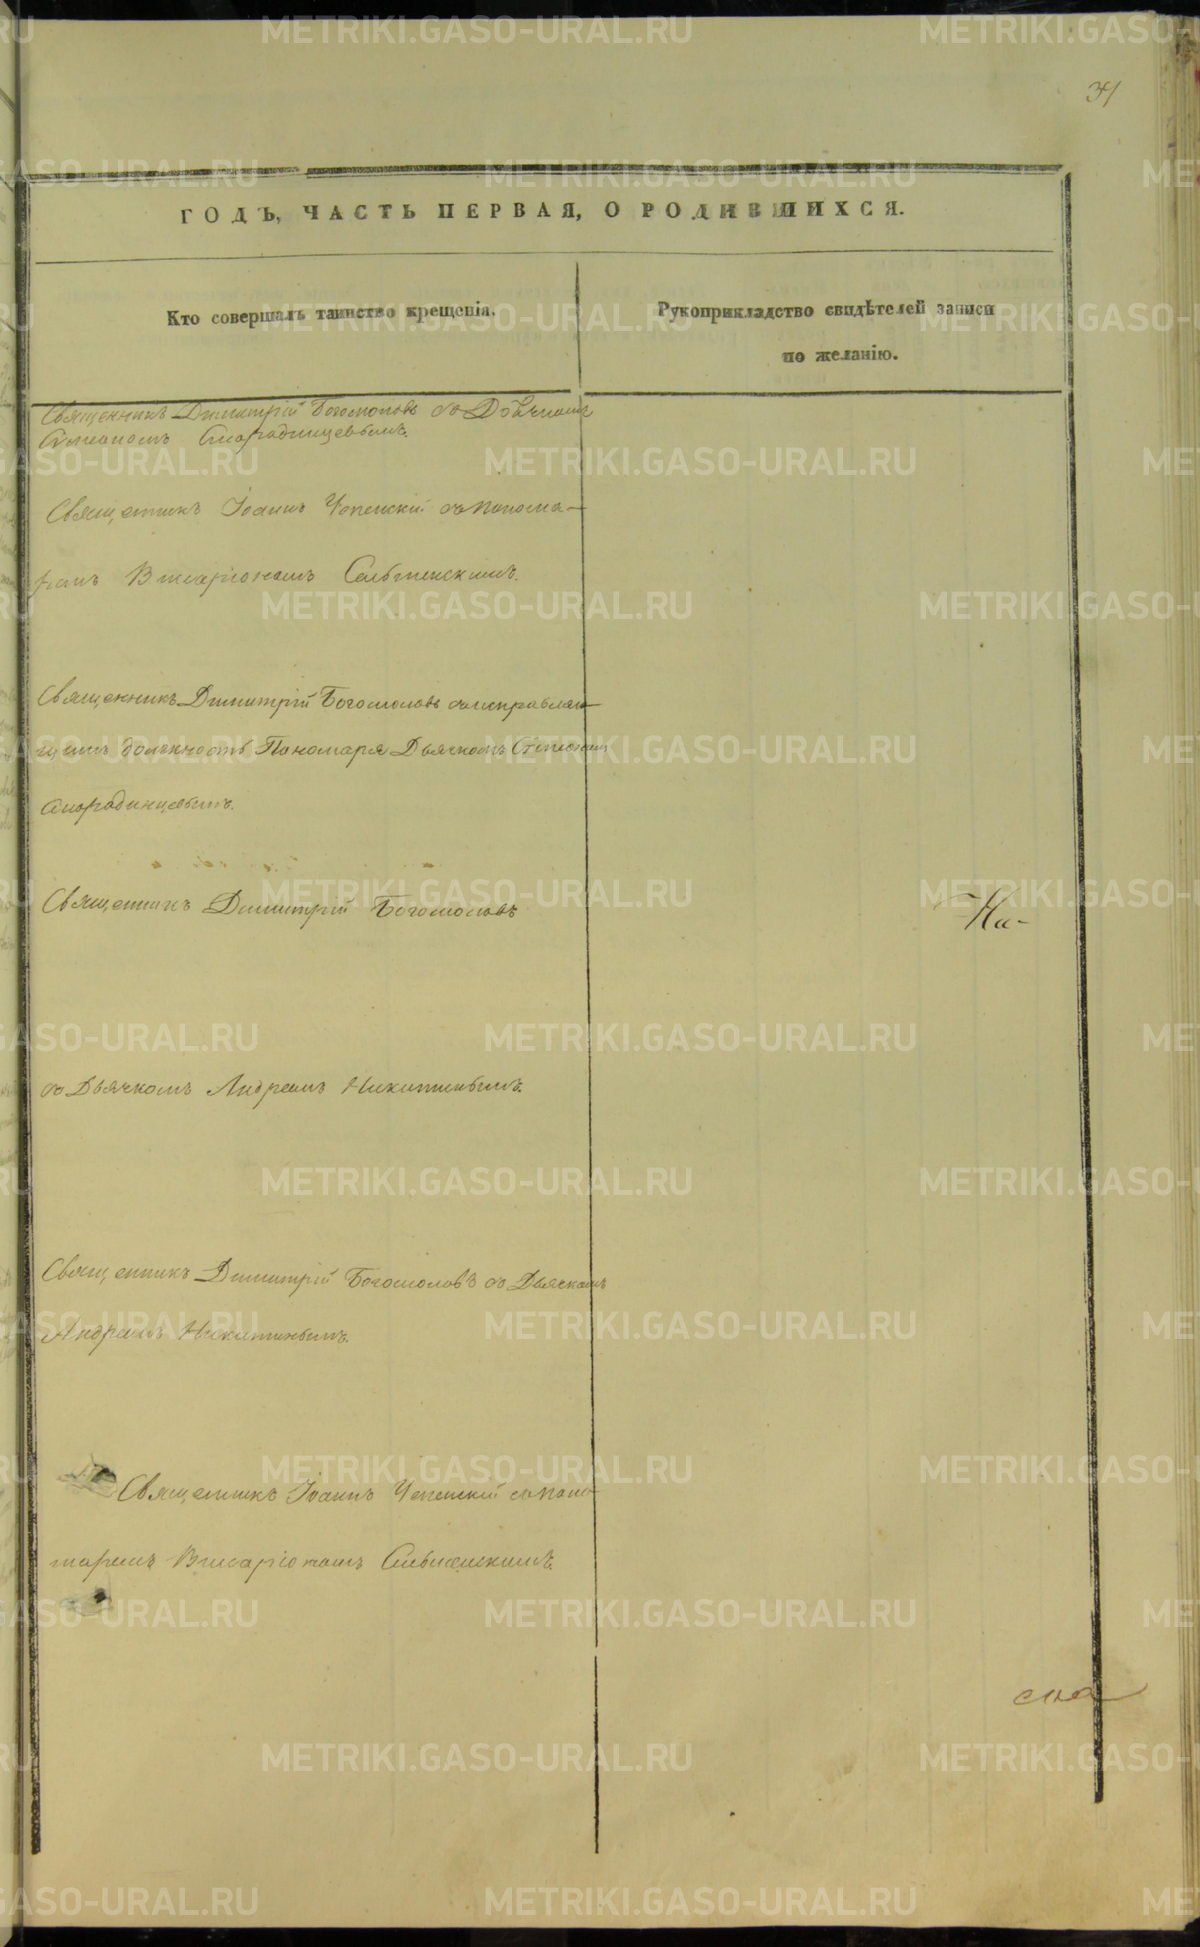 34
ГОДЪ, ЧАСТЬ ПЕРВАЯ, О РОДИВШИХСЯ.
Кто совершалъ таинство крещенія.
Рукоприкладство свидѣтелей записи
по желанію.
Священникъ Димитрій Богомоловъ съ Дьячкомъ
Стефаномъ Смородинцевымъ.
Священникъ Іоаннъ Чепенскій съ Понома-
ремъ Висаріономъ Сельменскимъ.
Священникъ Димитрій Богомоловъ съ исправляю-
щимъ должность Пономаря Дьячкомъ Стефаномъ
Смородинцевымъ.
Священникъ Димитрій Богомоловъ
На-
съ Дьячкомъ Андреемъ Никитинымъ.
Священникъ Димитрій Богомоловъ съ Дьячкомъ
Андреемъ Никитинымъ.
Священникъ Іоаннъ Чепенскій съ Поно-
маремъ Висаріономъ Сельменскимъ.
METRIKI.GASO-URAL.RU